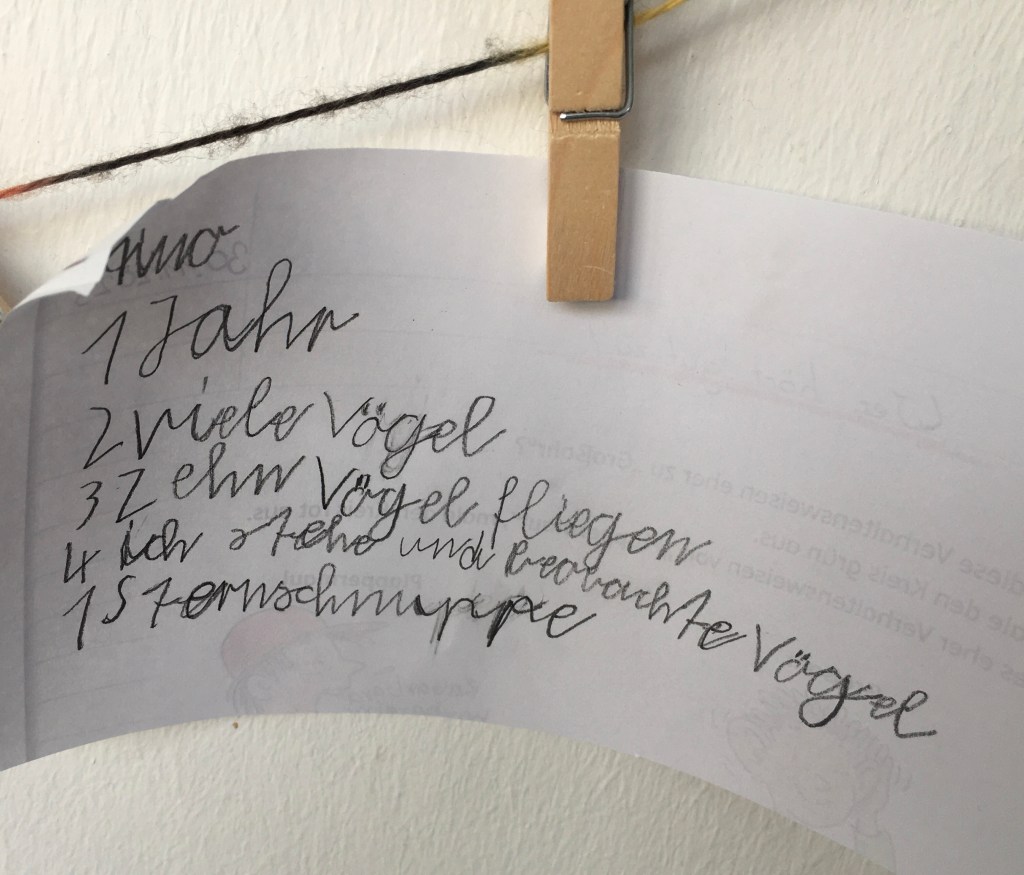 1 Jahr
2 viele Vögel
3 Zehn Vögel fliegen
4 ich stehe und beobachte Vögel
1 Sternschnuppe